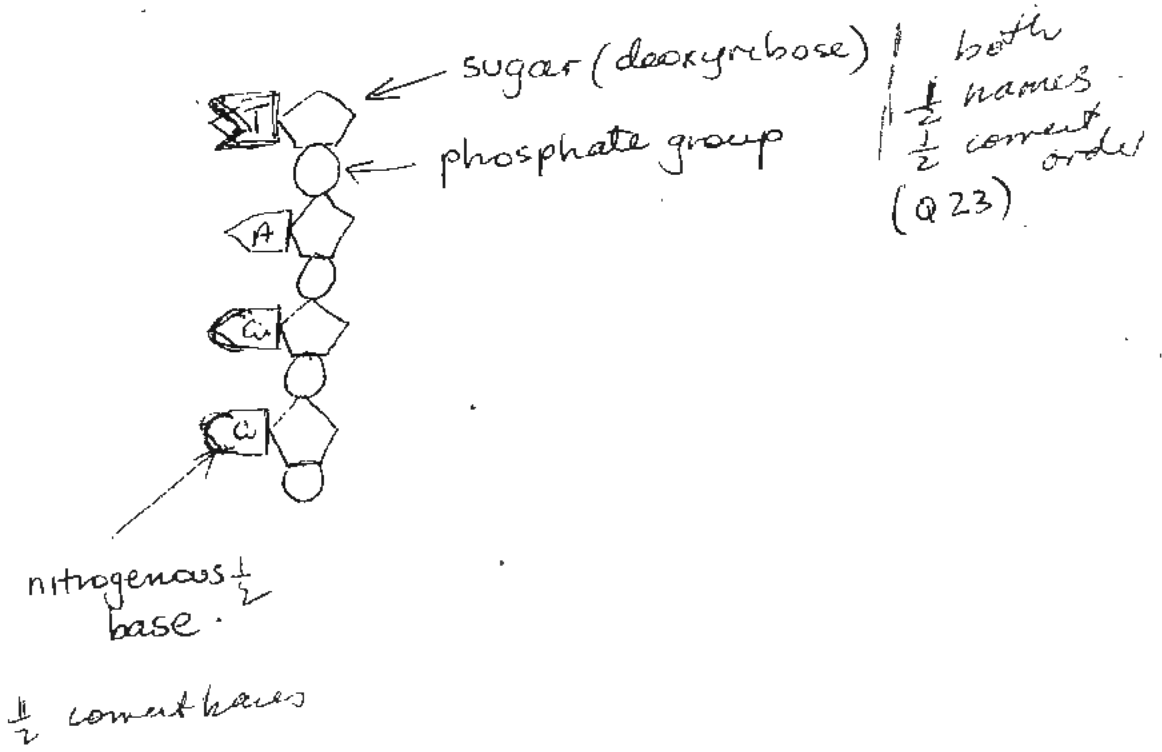 sugar (deoxyribose)
phosphate group
both
½ names
½ correct
order
(Q23)
T
A
G
G
nitrogenous ½
base.
½ correct bases